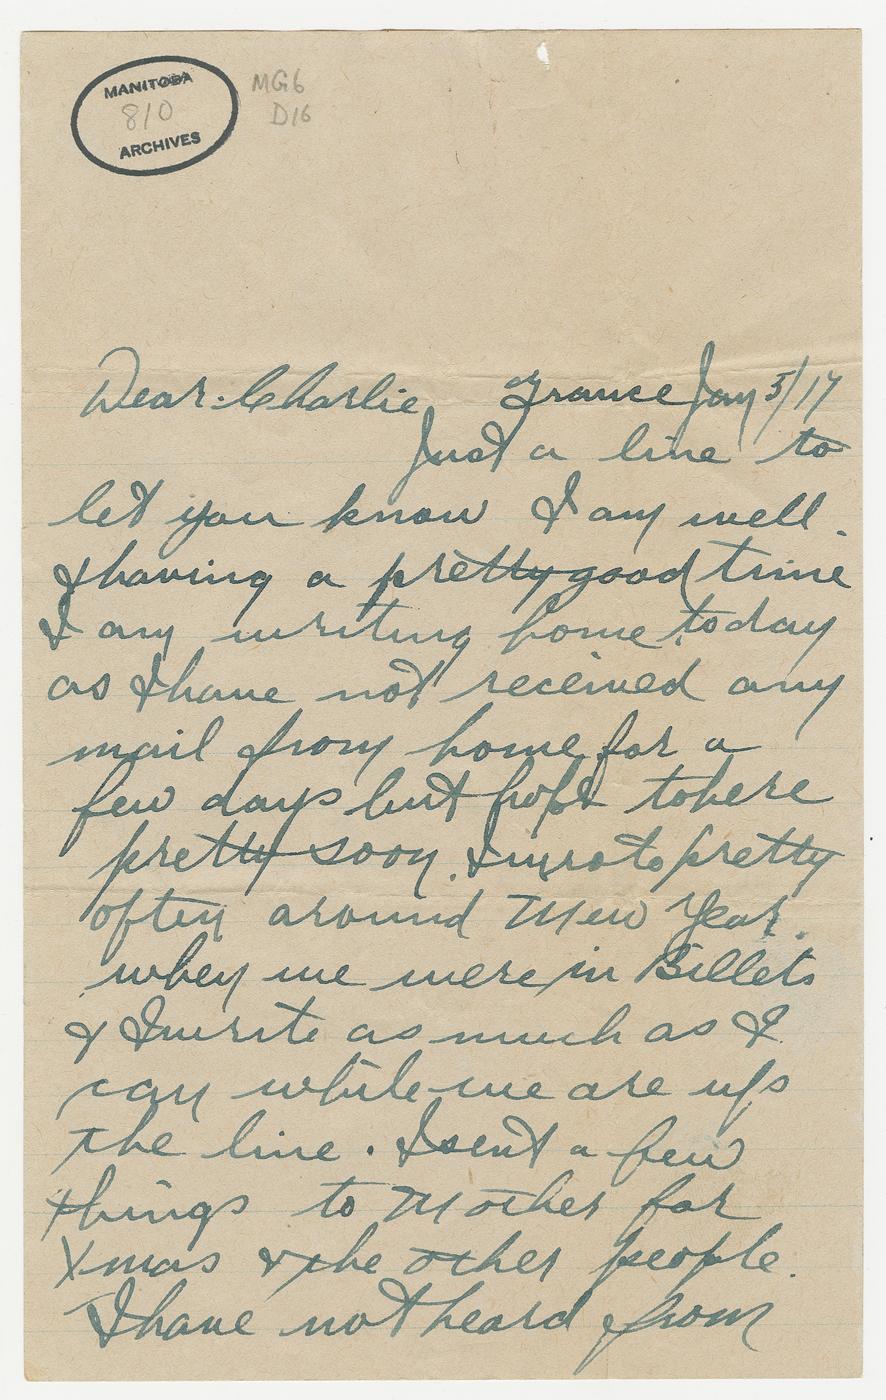 MANITOBA
810
ARCHIVES
MG6
D16
Dear Charlie France Jan 5/17
Just a line to
let you know I am well.
& having a pretty good time
I am writing home today
as I have not received any
mail from home for a
few days but hope to here
pretty soon. I wrote pretty
often around New Year.
when we were in Billets
& I write as much as I
can while we are up
the line. I sent a few
things to Mother for
Xmas & the other people.
I have not heard from